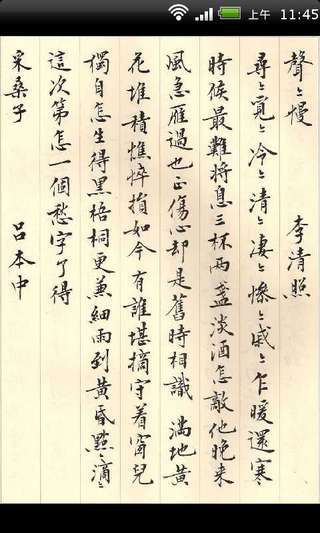 上午 11:45
聲〻慢 李清照
尋〻覓〻冷〻清〻淒〻慘〻戚〻乍暖還寒
時候最難將息三杯兩盞淡酒怎敵他晚來
風急雁過也正傷心却是舊時相識 滿地黄
花堆積憔悴損如今有誰堪摘守着窗兒
獨自怎生得黑梧桐更兼細雨到黄昏點〻滴〻
這次第怎一個愁字了得
采桑子 呂本中